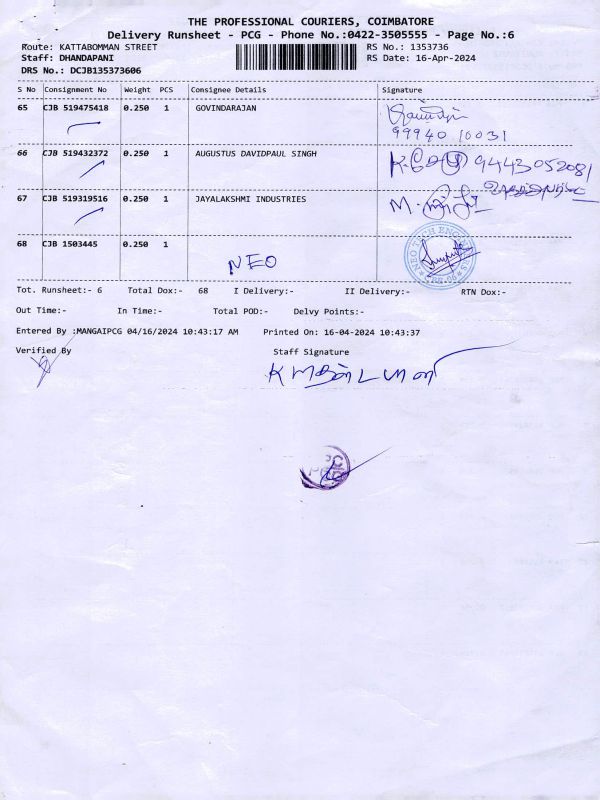 THE PROFESSIONAL COURIERS, COIMBATORE
Delivery Runsheet - PCG - Phone No.:0422-3505555 - Page No.:6
Route: KATTABOMMAN STREET RS No.: 1353736
Staff: DHANDAPANI RS Date: 16-Apr-2024
DRS No.: DCJB135373606
S No Consignment No Weight PCS Consignee Details Signature
65 CJB 519475418 0.250 1 GOVINDARAJAN
99940 10031
66 CJB 519432372 0.250 1 AUGUSTUS DAVIDPAUL SINGH 9443052081
67 CJB 519319516 0.250 1 JAYALAKSHMI INDUSTRIES
68 CJB 1503445 0.250 1
NEO
NEO TECH
Tot. Runsheet:- 6 Total Dox:- 68 I Delivery:- II Delivery:- RTN Dox:-
Out Time:- In Time:- Total POD:- Delvy Points:-
Entered By :MANGAIPCG 04/16/2024 10:43:17 AM Printed On: 16-04-2024 10:43:37
Verified By Staff Signature